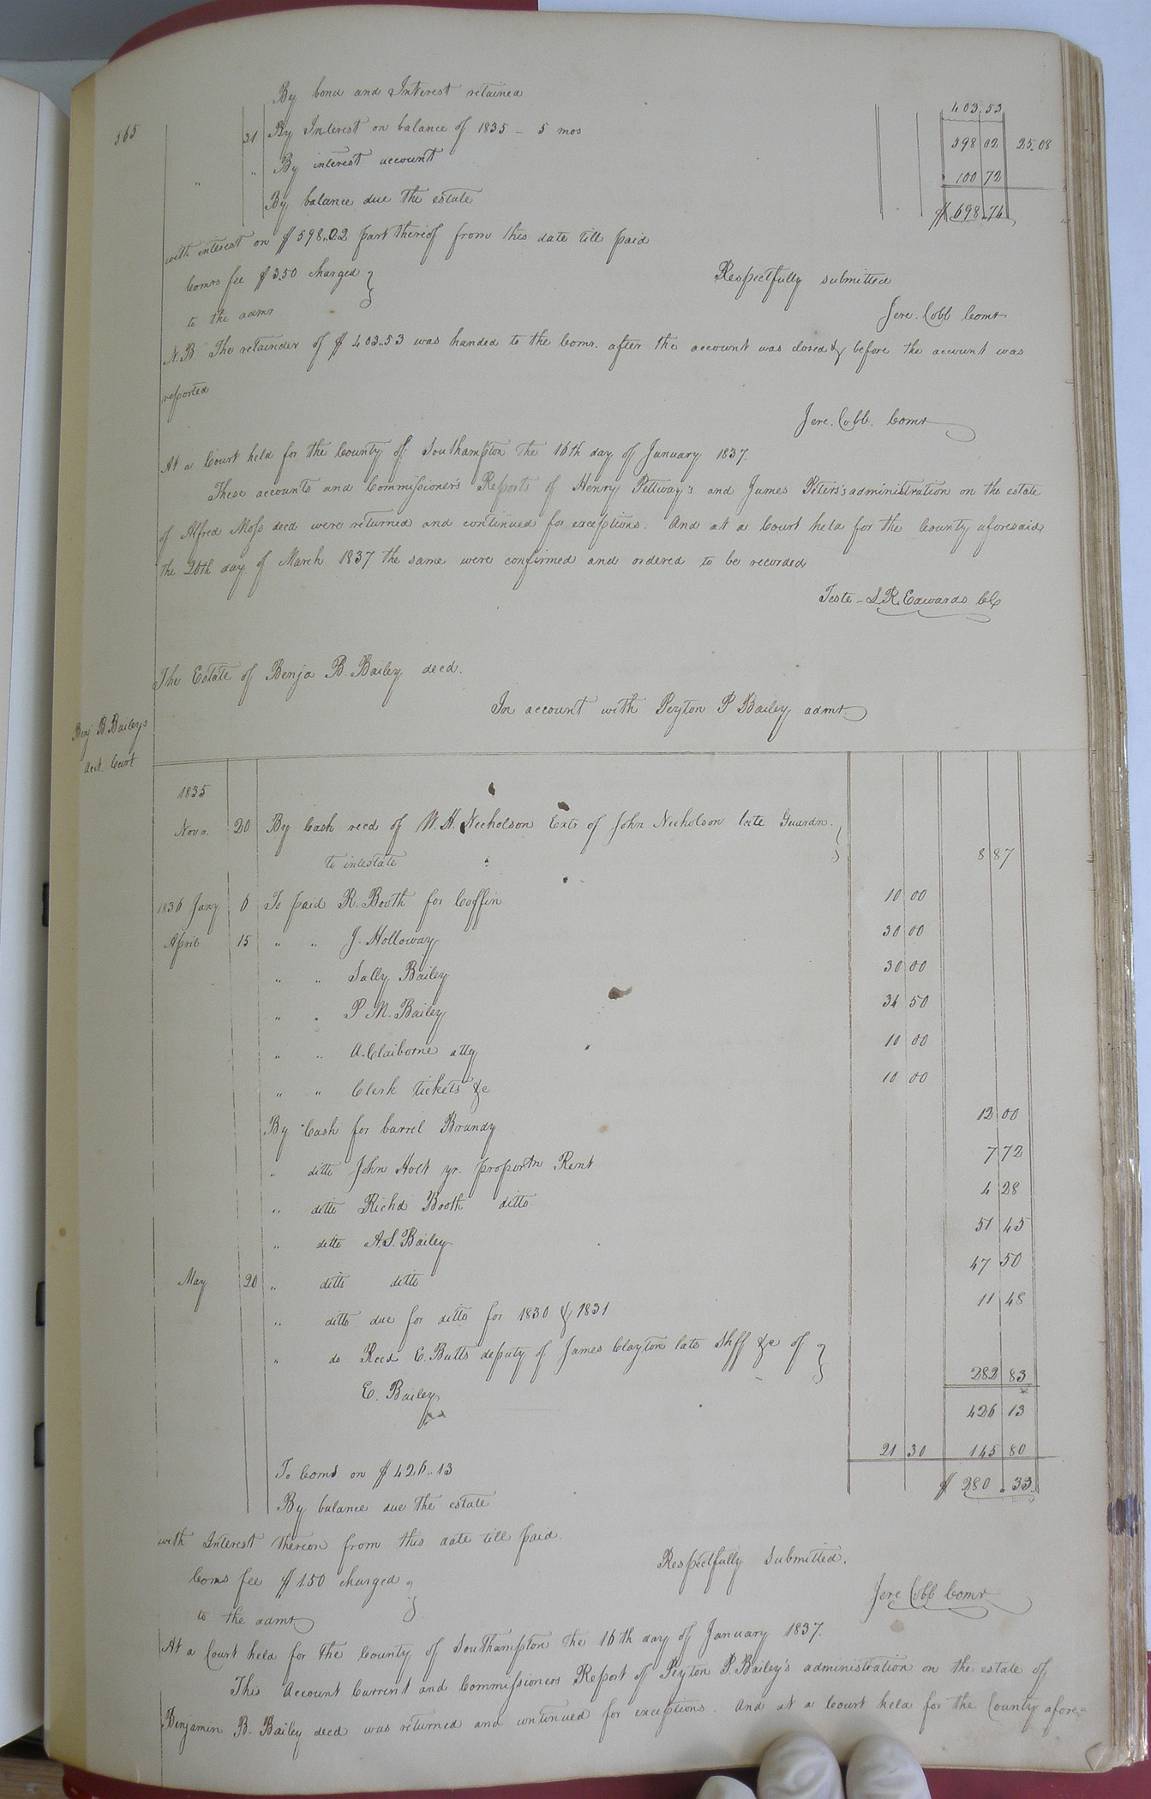 By bond and Interest retained 403.53
365 31 By Interest on balance of 1835 - 5 mos 25.08
" " By interest account 598 02
By balance due the estate 100 72
$698.74
with interest on $598.02 part thereof from this date till paid
Comrs fee $3.50 charged }
to the admr
Respectfully submitted
Jere. Cobb Comr
N.B The retainer of $403.53 was handed to the Comr. after the account was closed & before the account was
reported
Jere. Cobb. Comr
At a Court held for the County of Southampton the 16th day of January 1837.
These accounts and Commissioner's Reports of Henry Pettway's and James Peters's administration on the estate
of Alfred Moss decd were returned and continued for exceptions. And at a Court held for the County aforesaid
the 20th day of March 1837 the same were confirmed and ordered to be recorded
Teste - L R Edwards CC
The Estate of Benja B. Bailey decd.
In account with Peyton P Bailey admr
Benj B Bailey's
Acct. Curt
1835
Novr. 20 By Cash recd of W. H. Nicholson Exr of John Nicholson late Guardn. }
to intestate 8 87
1836 Jany 6 To paid R. Booth for Coffin 10 00
April 15 " " J. Holloway 30 00
" " Sally Bailey 30 00
" " P. M. Bailey 34 50
" " A. Claiborne atty 10 00
" " Clerk tickets &c 10 00
By Cash for barrel Brandy 12 00
" ditto John Holt yr. proportn Rent 7 72
" ditto Richd Booth ditto 4 28
" ditto A.S. Bailey 51 45
May 20 " ditto ditto 47 50
" ditto due for ditto for 1830 & 1831 11 48
" do Recd E. Butts deputy of James Clayton late Shff &c of }
E. Bailey 282 83
426 13
To Coms on $426.13 21 30 145 80
By balance due the estate $280.33
with Interest thereon from this date till paid.
Coms fee $1.50 charged }
to the admr
Respectfully Submitted.
Jere Cobb Comr
At a Court held for the County of Southampton the 16th day of January 1837.
This Account Current and Commissioners Report of Peyton P. Bailey's administration on the estate of
Benjamin B. Bailey decd was returned and continued for exceptions. And at a Court held for the County afore=